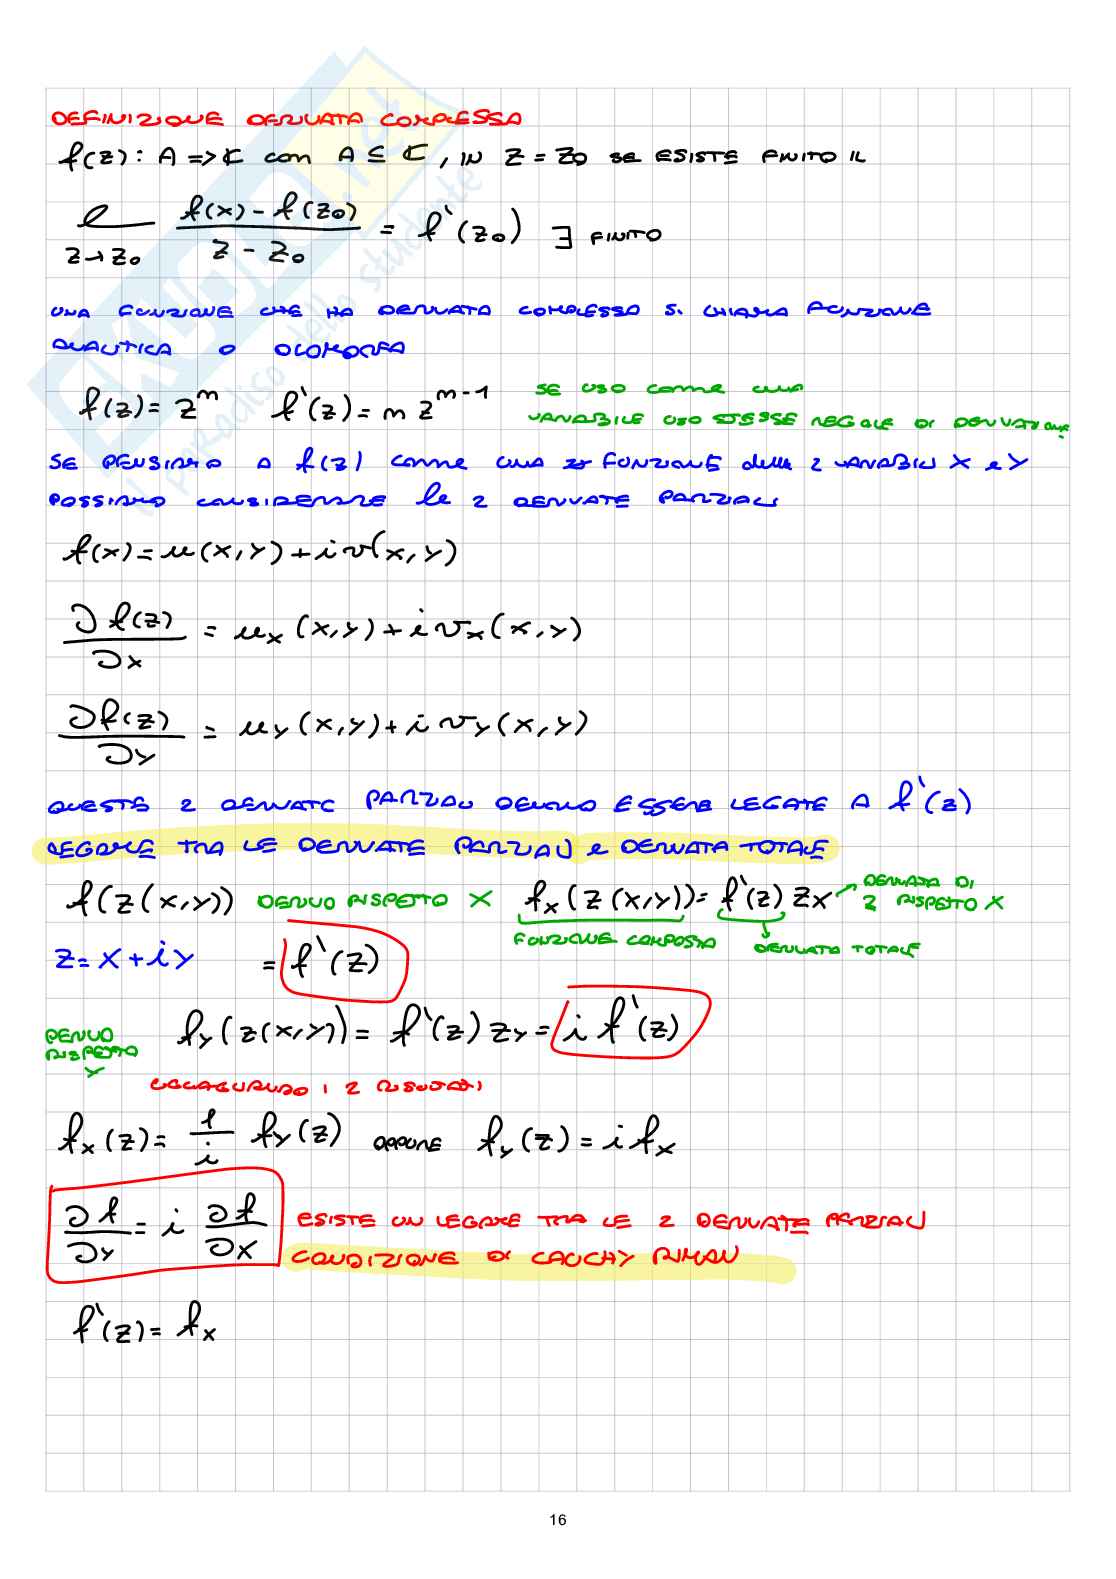 DEFINIZIONE DERIVATA COMPLESSA
f(z): A => ℂ con A ⊆ ℂ, IN z = z₀ se ESISTE FINITO IL
l z→z₀ (f(x) - f(z₀)) / (z - z₀) = f'(z₀) ∃ FINITO
UNA FUNZIONE CHE HA DERIVATA COMPLESSA SI CHIAMA FUNZIONE
ANALITICA O OLOMORFA
f(z) = zⁿ f'(z) = n zⁿ⁻¹ SE USO come una
VARIABILE USO STESSE REGOLE DI DERIVAZIONE
SE PENSIAMO A f(z) come una FUNZIONE delle 2 VARIABILI X e Y
POSSIAMO CONSIDERARE le 2 DERIVATE PARZIALI
f(x) = u(x,y) + i v(x,y)
∂f(z)/∂x = uₓ(x,y) + i vₓ(x,y)
∂f(z)/∂y = u_y(x,y) + i v_y(x,y)
QUESTE 2 DERIVATE PARZIALI DEVONO ESSERE LEGATE A f'(z)
LEGAME TRA LE DERIVATE PARZIALI e DERIVATA TOTALE
f(z(x,y)) DERIVO RISPETTO X fₓ(z(x,y)) = f'(z) zₓ → DERIVATA DI
Z RISPETTO X
FUNZIONE COMPOSTA DERIVATA TOTALE
z = x + iy = f'(z)
DERIVO f_y(z(x,y)) = f'(z) z_y = i f'(z)
RISPETTO
Y
EGUAGLIANDO I 2 RISULTATI
fₓ(z) = 1/i f_y(z) OPPURE f_y(z) = i fₓ
∂f/∂y = i ∂f/∂x ESISTE UN LEGAME TRA LE 2 DERIVATE PARZIALI
CONDIZIONE DI CAUCHY RIMAN
f'(z) = fₓ
16
.net
il paradiso dello studente